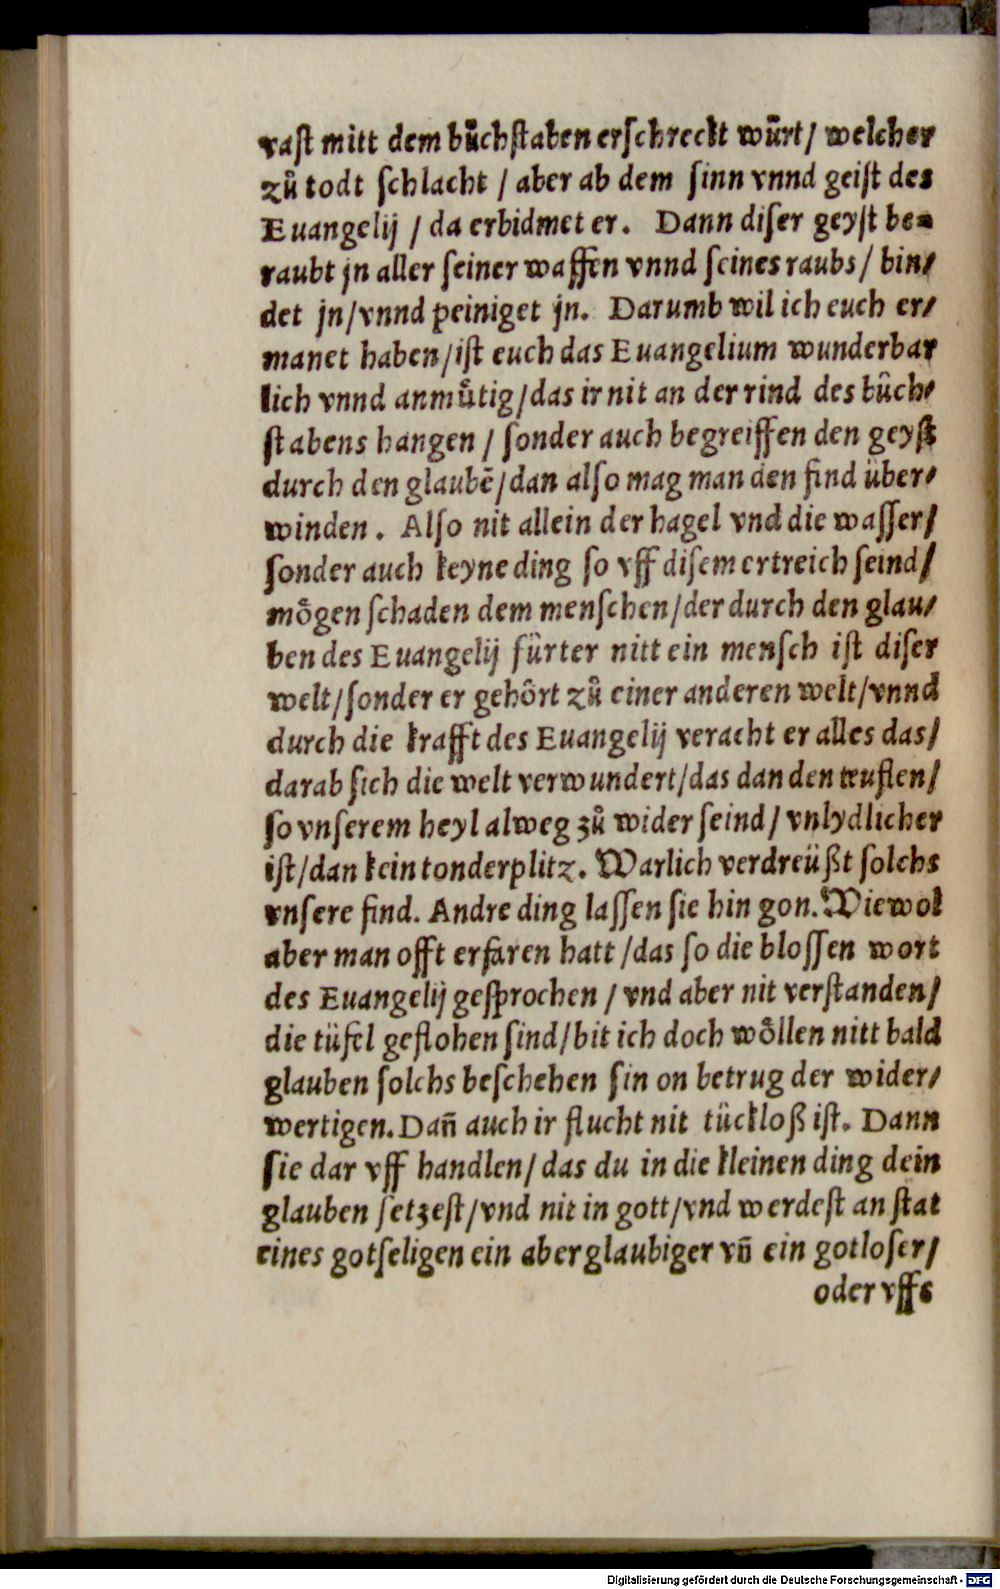 vast mitt dem bůchstaben erschreckt würt/ welcher
zů todt schlacht / aber ab dem sinn vnnd geist des
Euangelij / da erbidmet er. Dann diser geyst be-
raubt jn aller seiner waffen vnnd seines raubs/ bin/
det jn/vnnd peiniget jn. Darumb wil ich euch er/
manet haben/ist euch das Euangelium wunderbar
lich vnnd anmuͤtig/das ir nit an der rind des bůch/
stabens hangen / sonder auch begreiffen den geyst
durch den glaubē/dan also mag man den find über/
winden. Also nit allein der hagel vnd die wasser/
sonder auch keyne ding so vff disem ertreich seind/
moͤgen schaden dem menschen/der durch den glau/
ben des Euangelij fürter nitt ein mensch ist diser
welt/sonder er gehoͤrt zů einer anderen welt/vnnd
durch die krafft des Euangelij veracht er alles das/
darab sich die welt verwundert/das dan den teuflen/
so vnserem heyl alweg zů wider seind/ vnlydlicher
ist/dan kein tonderplitz. Warlich verdreüßt solchs
vnsere find. Andre ding lassen sie hin gon. Wiewol
aber man offt erfaren hatt /das so die blossen wort
des Euangelij gesprochen / vnd aber nit verstanden/
die tüfel geflohen sind/bit ich doch woͤllen nitt bald
glauben solchs beschehen sin on betrug der wider/
wertigen. Dañ auch ir flucht nit tückloß ist. Dann
sie dar vff handlen/ das du in die kleinen ding dein
glauben setzest/vnd nit in gott/vnd werdest an stat
eines gotseligen ein aberglaubiger vñ ein gotloser/
oder vffs
Digitalisierung gefördert durch die Deutsche Forschungsgemeinschaft - DFG